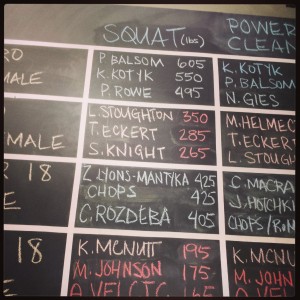 SQUAT (lbs)
POWER
CLEAN
RO
MALE
P. BALSOM 605
K. KOTYK 550
P. ROWE 495
K. KOTYK
P. BALSOM
N. GIES
MALE
L. STOUGHTON 350
T. ECKERT 285
S. KNIGHT 265
M. HELMEC
T. ECKERT
L. STOUGH
R 18
E
Z LYONS-MANTYKA 425
CHOPS 425
C. ROZDEBA 405
C. MACRA
J. HOTCHKI
CHOPS/
18
E
K. MCNUTT 195
M. JOHNSON 175
165
K. MCNU
M. JOHNS